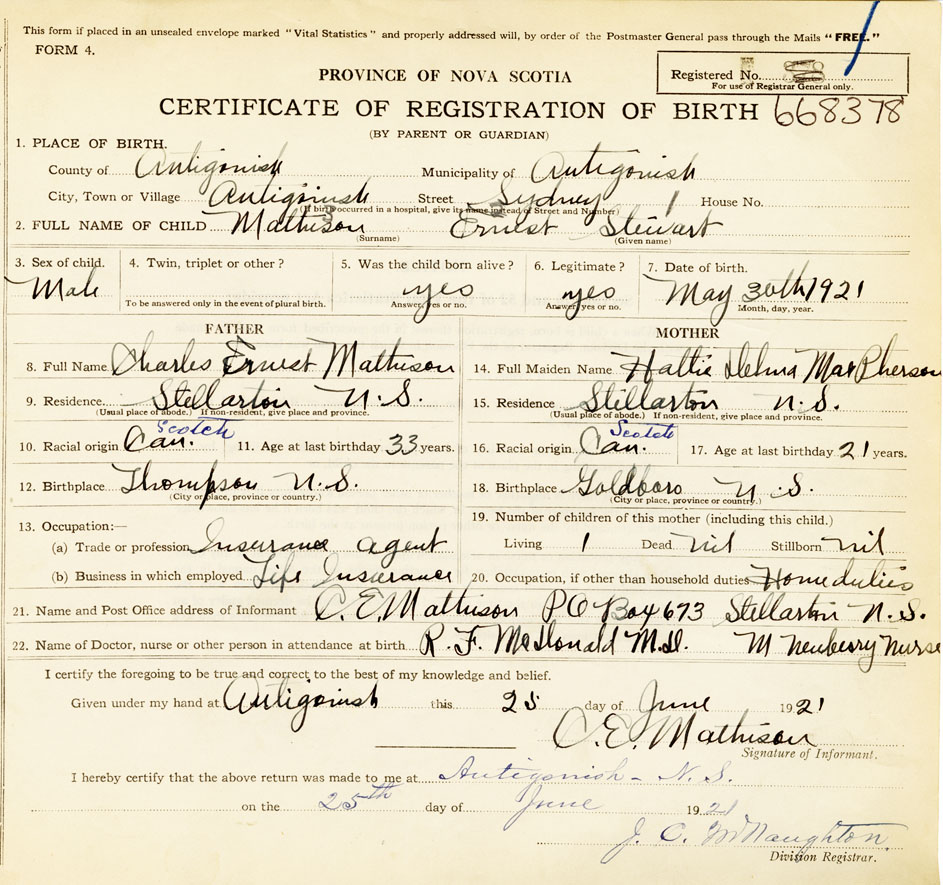 This form if placed in an unsealed envelope marked "Vital Statistics" and properly addressed will, by order of the Postmaster General pass through the Mails "FREE."
FORM 4.
PROVINCE OF NOVA SCOTIA
Registered No.
For use of Registrar General only.
CERTIFICATE OF REGISTRATION OF BIRTH 668378
(BY PARENT OR GUARDIAN)
1. PLACE OF BIRTH.
County of Antigonish Municipality of Antigonish
City, Town or Village Antigonish Street Sydney 1 House No.
(If birth occurred in a hospital, give its name instead of Street and Number)
2. FULL NAME OF CHILD Mathison Ernest Stewart
(Surname) (Given name)
3. Sex of child. 4. Twin, triplet or other? 5. Was the child born alive? 6. Legitimate? 7. Date of birth.
Male yes yes May 30th 1921
To be answered only in the event of plural birth. Answer, yes or no. Answer, yes or no. Month, day, year.
FATHER
8. Full Name Charles Ernest Mathison
9. Residence Stellarton N.S.
(Usual place of abode.) If non-resident, give place and province.
Scotch
10. Racial origin Can. 11. Age at last birthday 33 years.
12. Birthplace Thompson N.S.
(City or place, province or country.)
13. Occupation:—
(a) Trade or profession Insurance agent
(b) Business in which employed Life Insurance
MOTHER
14. Full Maiden Name Hattie Delma MacPherson
15. Residence Stellarton N.S.
(Usual place of abode.) If non-resident, give place and province.
Scotch
16. Racial origin Can. 17. Age at last birthday 21 years.
18. Birthplace Goldboro N.S.
(City or place, province or country.)
19. Number of children of this mother (including this child.)
Living 1 Dead nil Stillborn nil
20. Occupation, if other than household duties Home duties
21. Name and Post Office address of Informant C.E. Mathison PO Box 673 Stellarton N.S.
22. Name of Doctor, nurse or other person in attendance at birth R. F. McDonald M.D. M Newberry Nurse
I certify the foregoing to be true and correct to the best of my knowledge and belief.
Given under my hand at Antigonish this 25 day of June 1921
C.E. Mathison
Signature of Informant.
I hereby certify that the above return was made to me at Antigonish - N.S.
on the 25th day of June 1921
J. C. McNaughton
Division Registrar.